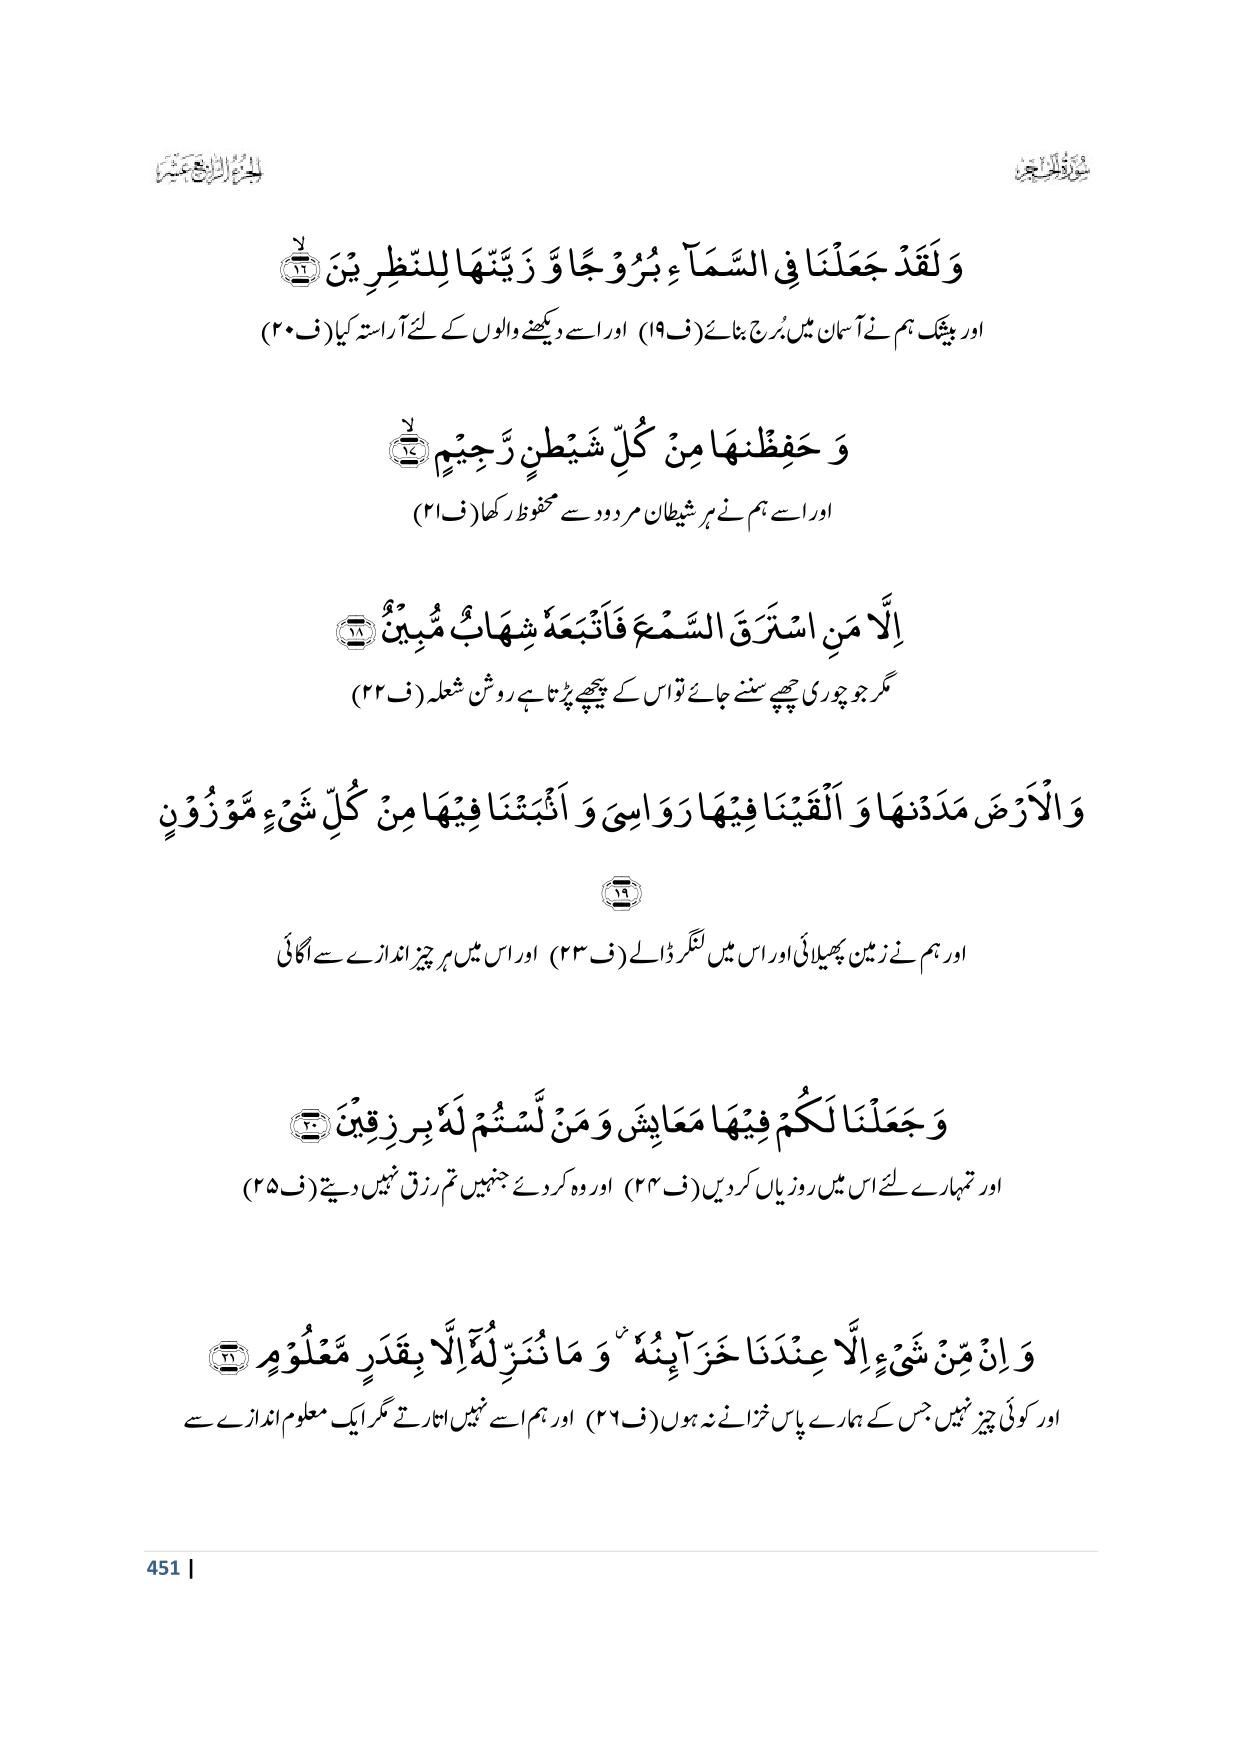 سُوْرَۃُ الْحِجْر
الجزءالرابع عشر
وَ لَقَدْ جَعَلْنَا فِی السَّمَآءِ بُرُوْجًا وَّ زَیَّنّٰهَا لِلنّٰظِرِیْنَۙ۝۱۶
اور بیشک ہم نے آسمان میں بُرج بنائے(ف۱۹) اور اسے دیکھنے والوں کے لئے آراستہ کیا(ف۲۰)
وَ حَفِظْنٰهَا مِنْ كُلِّ شَیْطٰنٍ رَّجِیْمٍۙ۝۱۷
اور اسے ہم نے ہر شیطان مردود سے محفوظ رکھا(ف۲۱)
اِلَّا مَنِ اسْتَرَقَ السَّمْعَ فَاَتْبَعَهٗ شِهَابٌ مُّبِیْنٌ۝۱۸
مگر جو چوری چھپے سننے جائے تو اس کے پیچھے پڑتا ہے روشن شعلہ(ف۲۲)
وَ الْاَرْضَ مَدَدْنٰهَا وَ اَلْقَیْنَا فِیْهَا رَوَاسِیَ وَ اَنْۢبَتْنَا فِیْهَا مِنْ كُلِّ شَیْءٍ مَّوْزُوْنٍ
۝۱۹
اور ہم نے زمین پھیلائی اور اس میں لنگر ڈالے(ف۲۳) اور اس میں ہر چیز اندازے سے اگائی
وَ جَعَلْنَا لَكُمْ فِیْهَا مَعَایِشَ وَ مَنْ لَّسْتُمْ لَهٗ بِرٰزِقِیْنَ۝۲۰
اور تمہارے لئے اس میں روزیاں کردیں(ف۲۴) اور وہ کردئے جنہیں تم رزق نہیں دیتے(ف۲۵)
وَ اِنْ مِّنْ شَیْءٍ اِلَّا عِنْدَنَا خَزَآىٕنُهٗ٘ وَ مَا نُنَزِّلُهٗۤ اِلَّا بِقَدَرٍ مَّعْلُوْمٍ۝۲۱
اور کوئی چیز نہیں جس کے ہمارے پاس خزانے نہ ہوں(ف۲۶) اور ہم اسے نہیں اتارتے مگر ایک معلوم اندازے سے
451 |